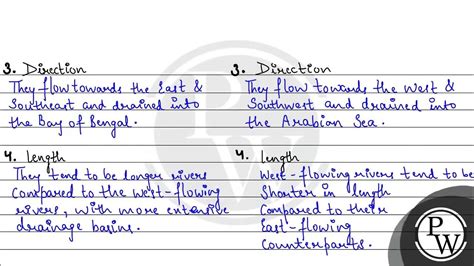 3. Direction
They flow towards the East &
Southeast and drained into
the Bay of Bengal.
4. Length
They tend to be longer rivers
compared to the west-flowing
rivers, with more extensive
drainage basins.
3. Direction
They flow towards the West &
Southwest and drained into
the Arabian Sea.
4. Length
West-flowing rivers tend to be
Shorter in length
compared to their
East-flowing
counterparts.
PW
PW